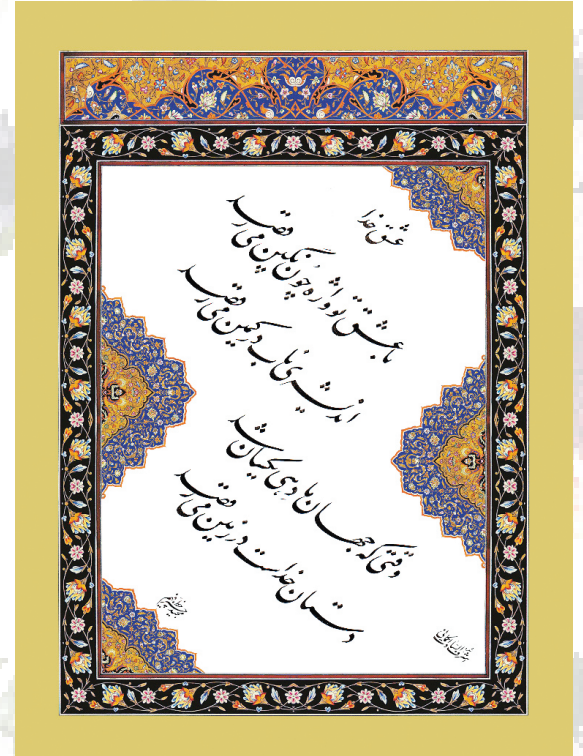 عشق خدا
با عشق تو واژه چون نگین می‌رقصد
اندیشه‌ی ناب در کمین می‌رقصد
وقتی که جهان ما دهی یکسان شد
دستان خداست در زمین می‌رقصد